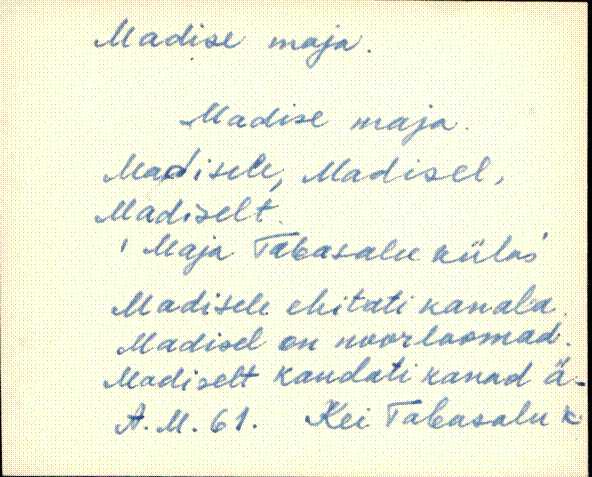 Madise maja.
Madise maja.
Madisele, Madisel,
Madiselt.
' Maja Tabasalu külas'
Madisele ehitati kanala.
Madisel on noorloomad.
Madiselt kaudati kanad ä.
A. M. 61. Kei Tabasalu k.